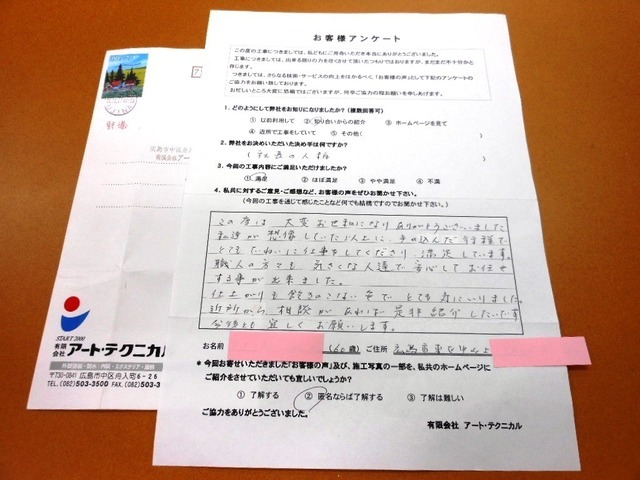 お客様アンケート
この度の工事につきましては、私どもにご用命いただき本当にありがとうございました。
工事につきましては、出来る限りの力を尽くさせて頂いたつもりではおりますが、まだまだ不十分かと
存じます。
つきましては、さらなる技術・サービスの向上をはかるべく「お客様の声」として下記のアンケートの
ご協力をお願い致しております。
お忙しいところ大変に恐縮ではございますが、何卒ご協力の程お願いを申しあげます。
1. どのようにして弊社をお知りになりましたか?(複数回答可)
① 以前利用して ② 知り合いからの紹介 ③ ホームページを見て
④ 近所で工事をしていて ⑤ その他( )
2. 弊社をお決めいただいた決め手は何ですか?
(社長の人柄 )
3. 今回の工事内容にご満足いただけましたか?
① 満足 ② ほぼ満足 ③ やや満足 ④ 不満
4. 私共に対するご意見・ご感想など、お客様の声をぜひお聞かせ下さい。
(今回の工事を通じて感じたことなど何でも結構ですのでお聞かせ下さい)
この度は 大変お世話になりありがとうございました
私達が想像していた以上に、手の込んだ行程で
とてもていねいに仕事をしてくださり、満足しています。
職人の方々も 気さくな人達で安心してお任せ
する事が出来ました。
仕上がりも飽きのこない色で とても気にいりました。
近所から相談があれば是非紹介したいです
今後とも宜しくお願いします。
お名前 (60歳) ご住所 広島市東区中山上
* 今回お寄せいただきました「お客様の声」及び、施工写真の一部を、私共のホームページに
ご紹介をさせていただいても宜しいでしょうか?
① 了解する ② 匿名ならば了解する ③ 了解は難しい
ご協力をありがとうございました。
有限会社 アート・テクニカル
広島市中区舟
有限会社アート
START 2000
有限会社 アート・テクニカル
外部塗装・防水・内装・エクステリア・造園
〒730-0841 広島市中区舟入町6-26
TEL.(082)503-3500 FAX.(082)503-